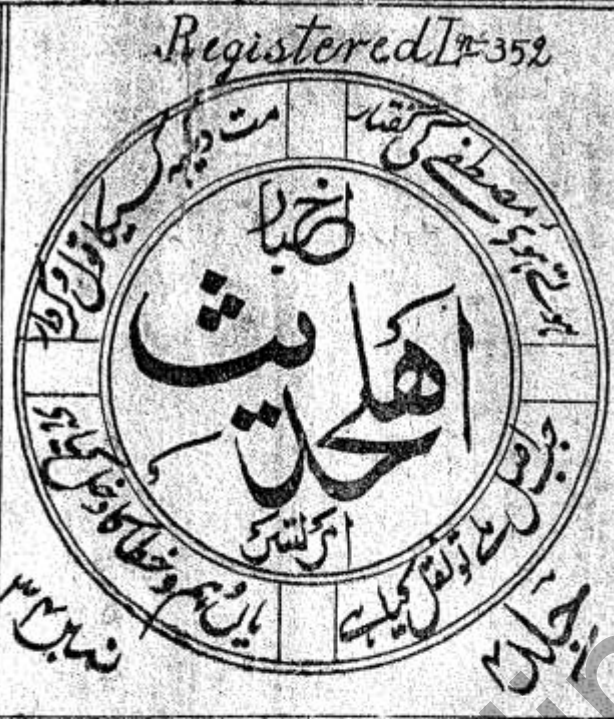 Registered L. No 352
ہوتے ہوئے مصطفےٰ کی گفتار
مت دیکھہ کسیکا قول و کردار
اخبار
اهلحدیث
امرتسر
جب اصل ملے تو نقل کیا ہے
یاں وہم و خطا کا دخل کیا ہے
جلد
نمبر ۳۴